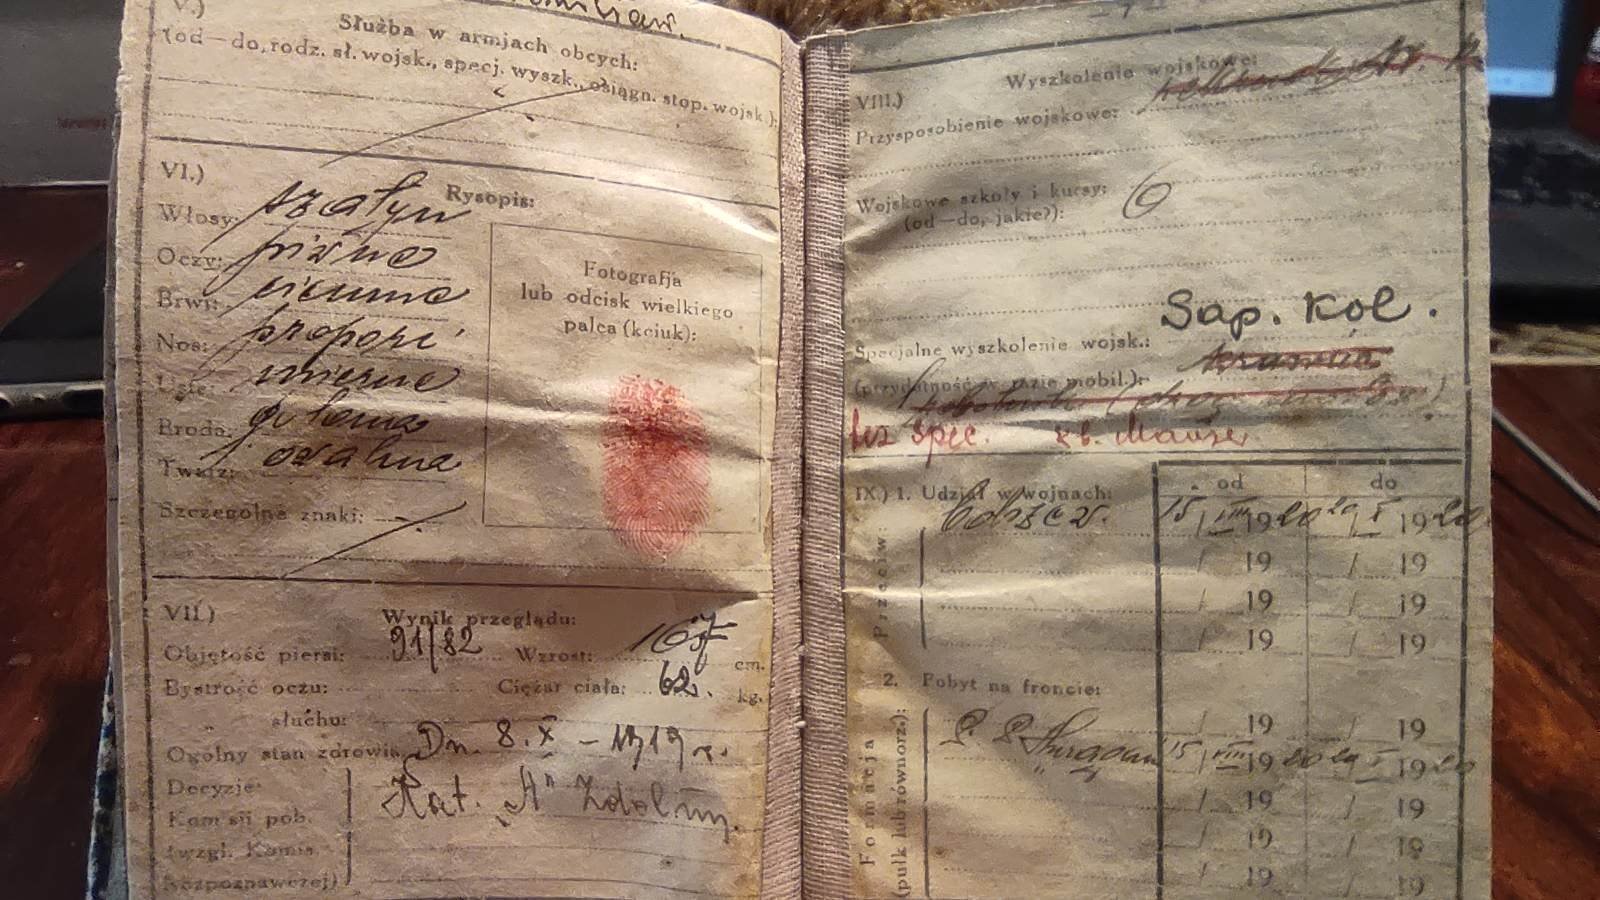 V.)
Służba w armjach obcych:
(od—do, rodz. sł. wojsk., specj. wyszk., osiągn. stop. wojsk.):
VI.)
Rysopis:
Włosy: szatyn
Oczy: piwne
Brwi: ciemne
Nos: proporc
Usta: mierne
Broda: golona
Twarz: owalna
Szczególne znaki: —
Fotografja
lub odcisk wielkiego
palca (kciuk):
VII.)
Wynik przeglądu:
Objętość piersi: 91/82 Wzrost: 167 cm.
Bystrość oczu: Ciężar ciała: 62. kg.
„ słuchu:
Ogólny stan zdrowia Dn. 8. X – 1919 r.
Decyzje
Kom sji pob.
Kat. „A" Zdolny.
(wzgl. Komis.
Rozpoznawczej)
— 7
VIII.)
Wyszkolenie wojskowe:
Przysposobienie wojskowe:
Wojskowe szkoły i kursy:
(od—do, jakie?):
Sap. Kol.
Specjalne wyszkolenie wojsk.:
(przydatność w razie mobil.):
bez spec. kb. Mauser
IX.) 1. Udział w wojnach:
od
do
Przeciw:
15/VIII 1920 / 19
/ 19 / 19
/ 19 / 19
/ 19 / 19
2. Pobyt na froncie:
Formacja
(pułk lub równorz.):
/ 19 / 19
15 VIII 1920 19
/ 19 / 19
/ 19 / 19
/ 19 / 19